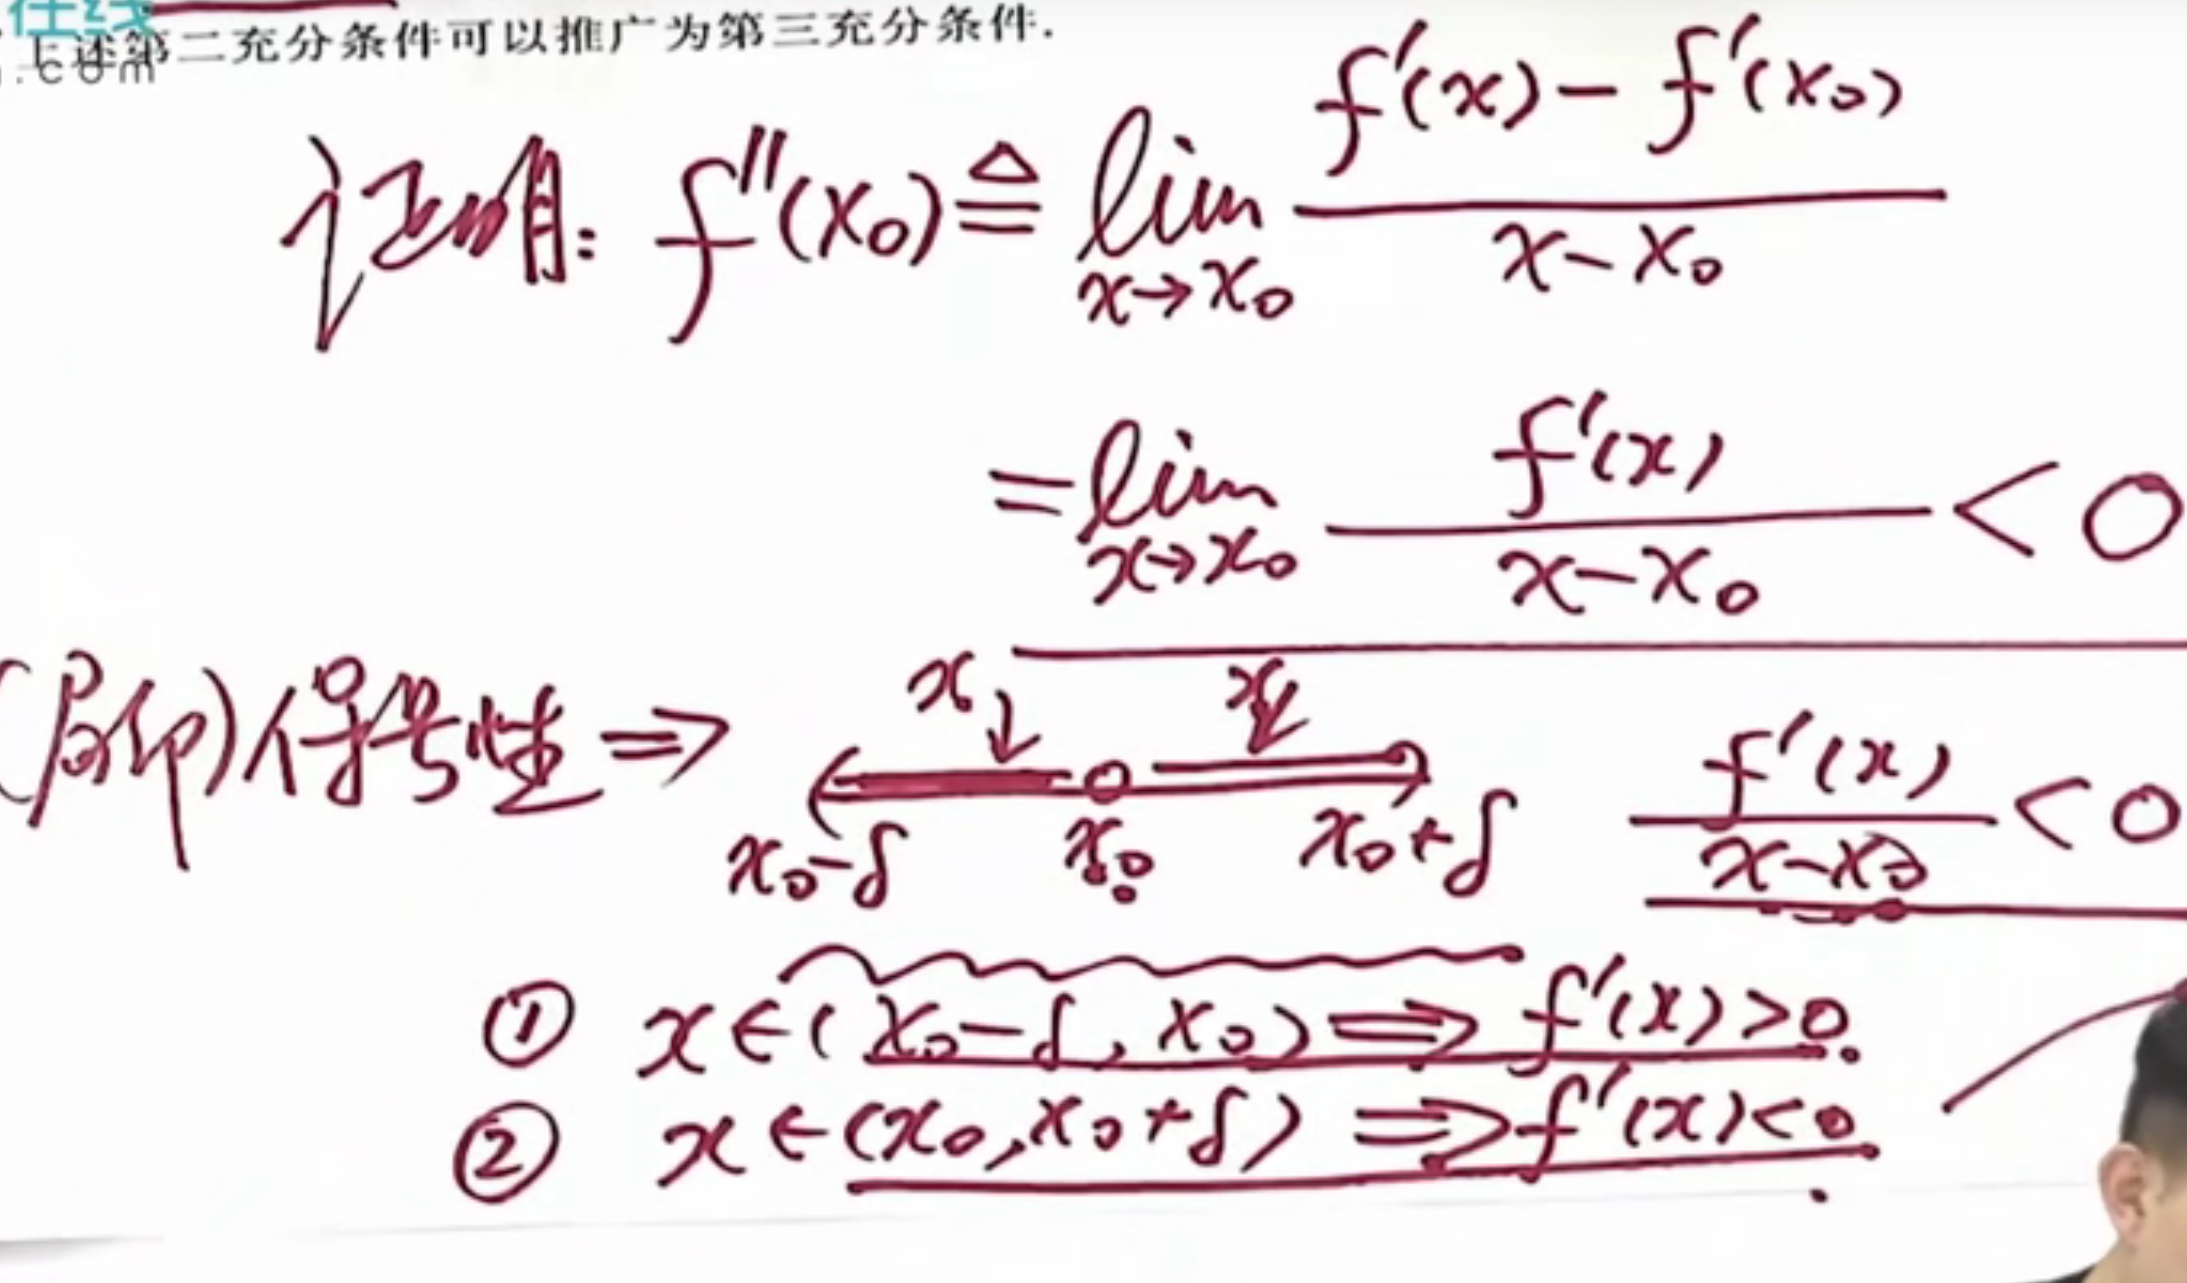 在线
.com
上述第二充分条件可以推广为第三充分条件.
证明: f''(x₀) ≜ lim_{x→x₀} (f'(x) - f'(x₀)) / (x - x₀)
= lim_{x→x₀} f'(x) / (x - x₀) < 0
(局部)保号性 ⇒ x x f'(x) / (x - x₀) < 0
x₀-δ x₀ x₀+δ
① x∈(x₀-δ, x₀) ⇒ f'(x)>0.
② x∈(x₀, x₀+δ) ⇒ f'(x)<0.